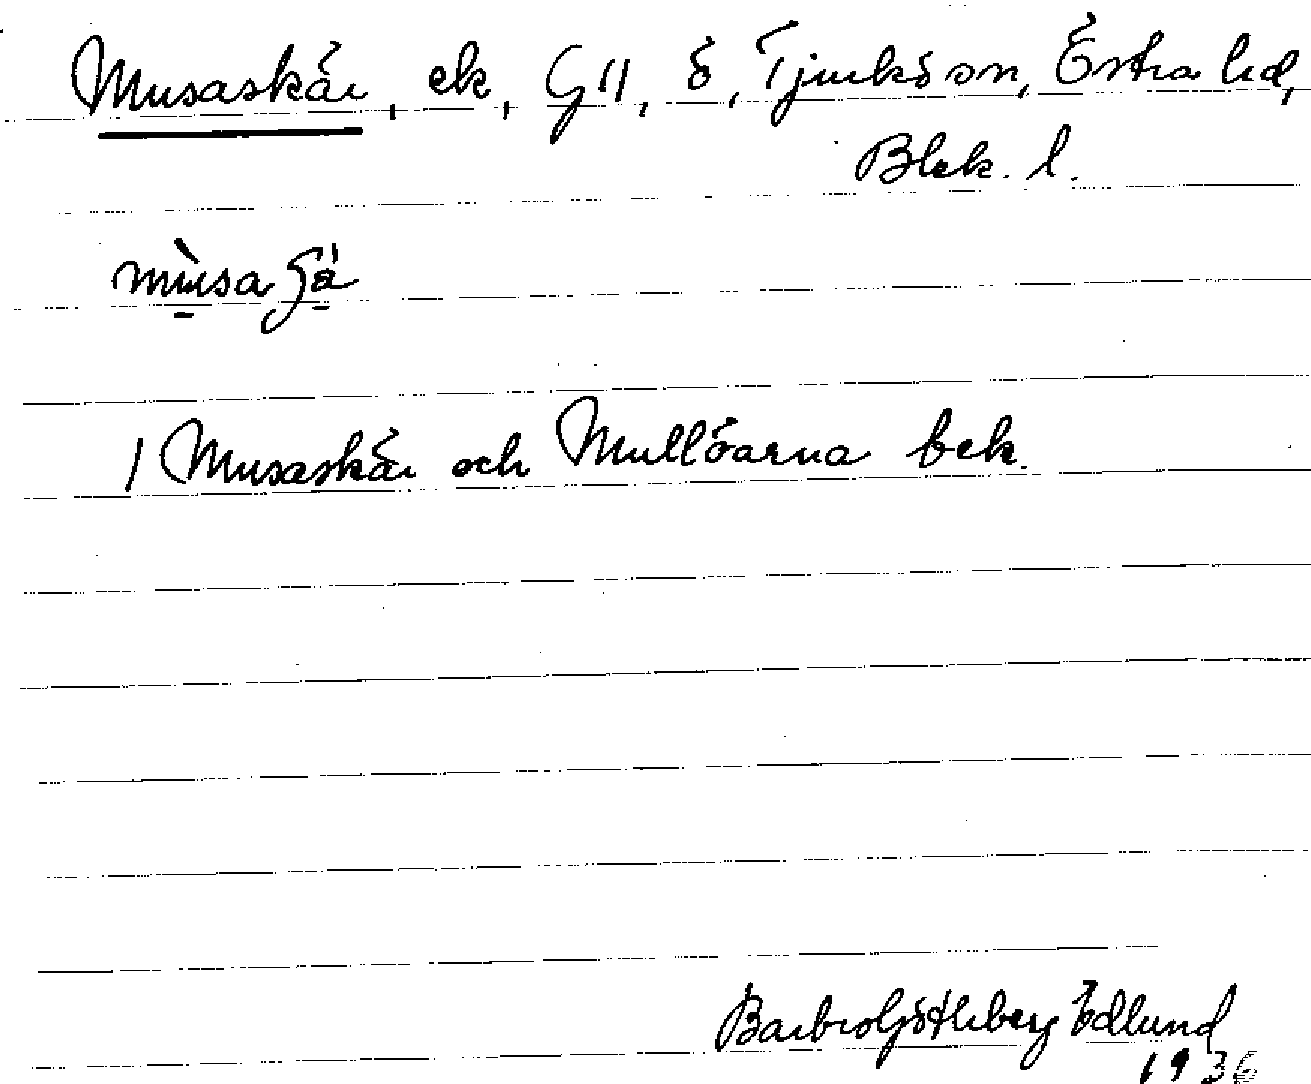 Musaskär, ek, G11, ö, Tjurkö sn, Östra hd,
Blek. l.
mùsa
1 Musaskär och Mullöarna bek.
Barbro Götlıberg Edlund
1936